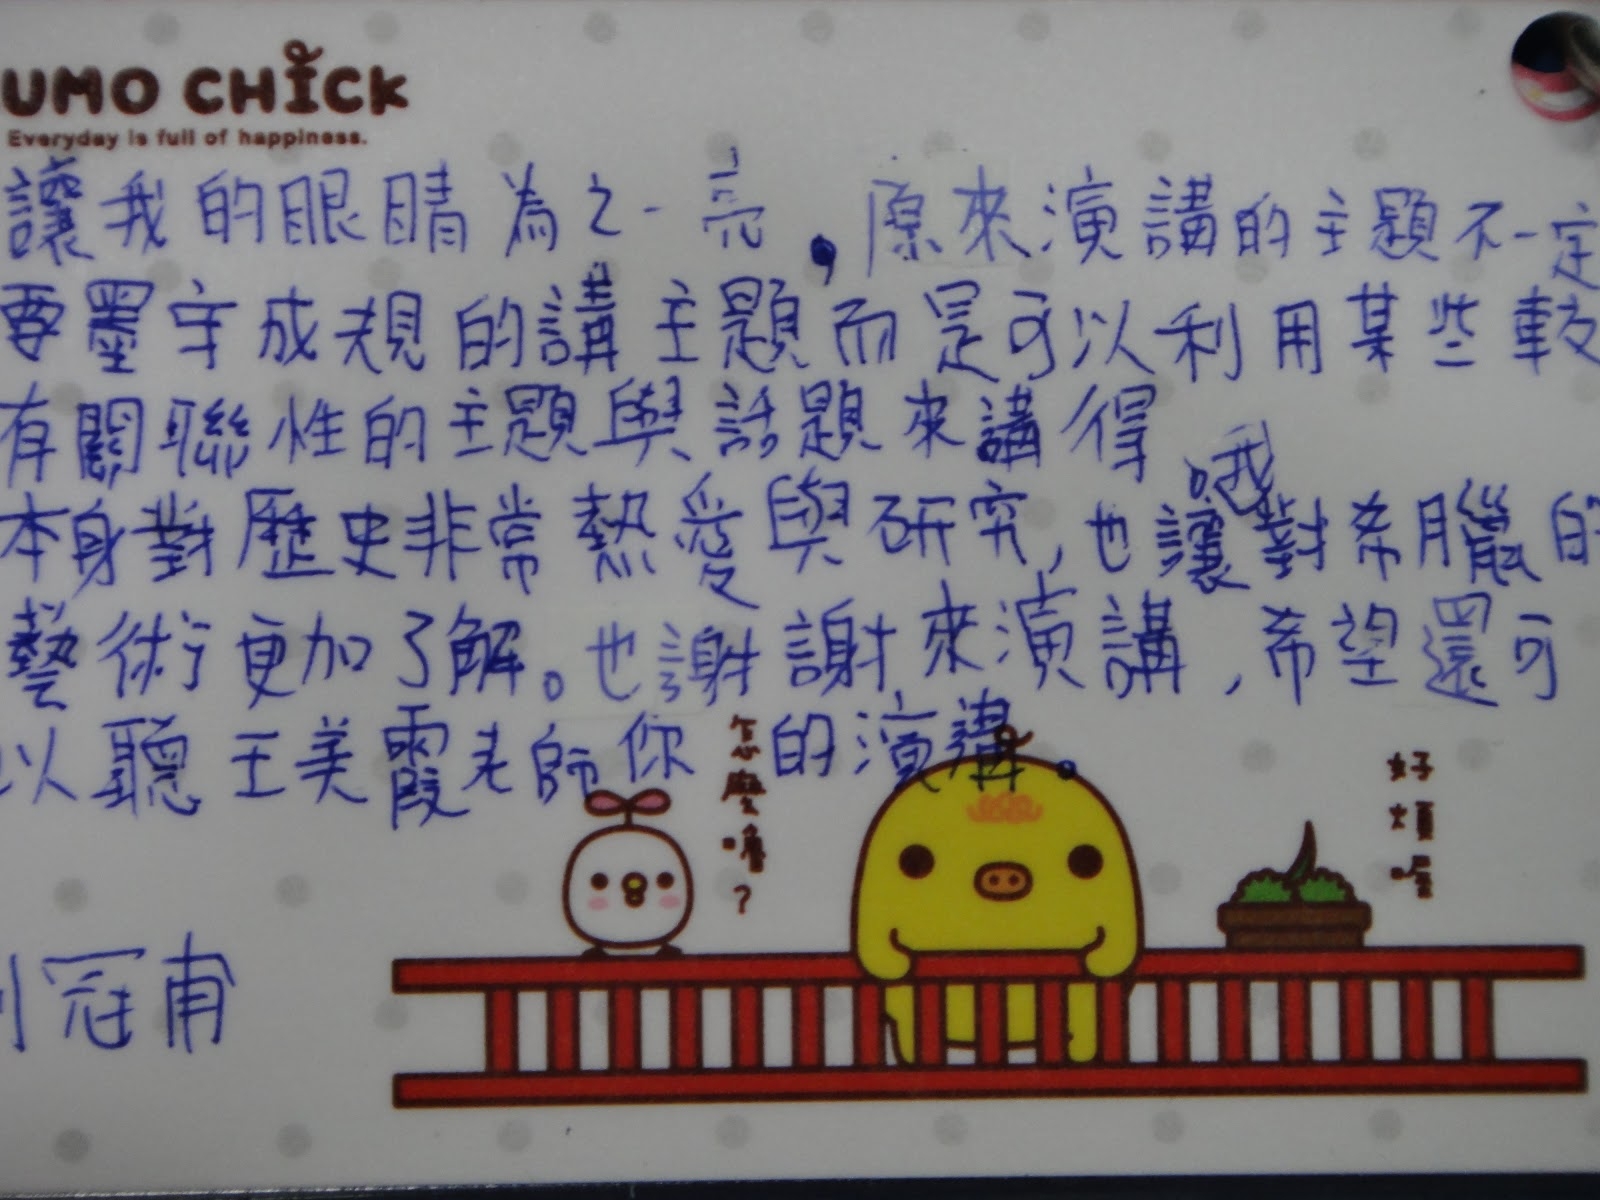 UMO CHICK
Everyday is full of happiness.
讓我的眼睛為之一亮，原來演講的主題不一定
要墨守成規的講主題而是可以利用某些較
有關聯性的主題與話題來講得。
本身對歷史非常熱愛與研究，也讓我對希臘的
藝術更加了解。也謝謝來演講，希望還可
以聽王美霞老師你的演講。
怎麼嚕？
好煩喔
冠甫